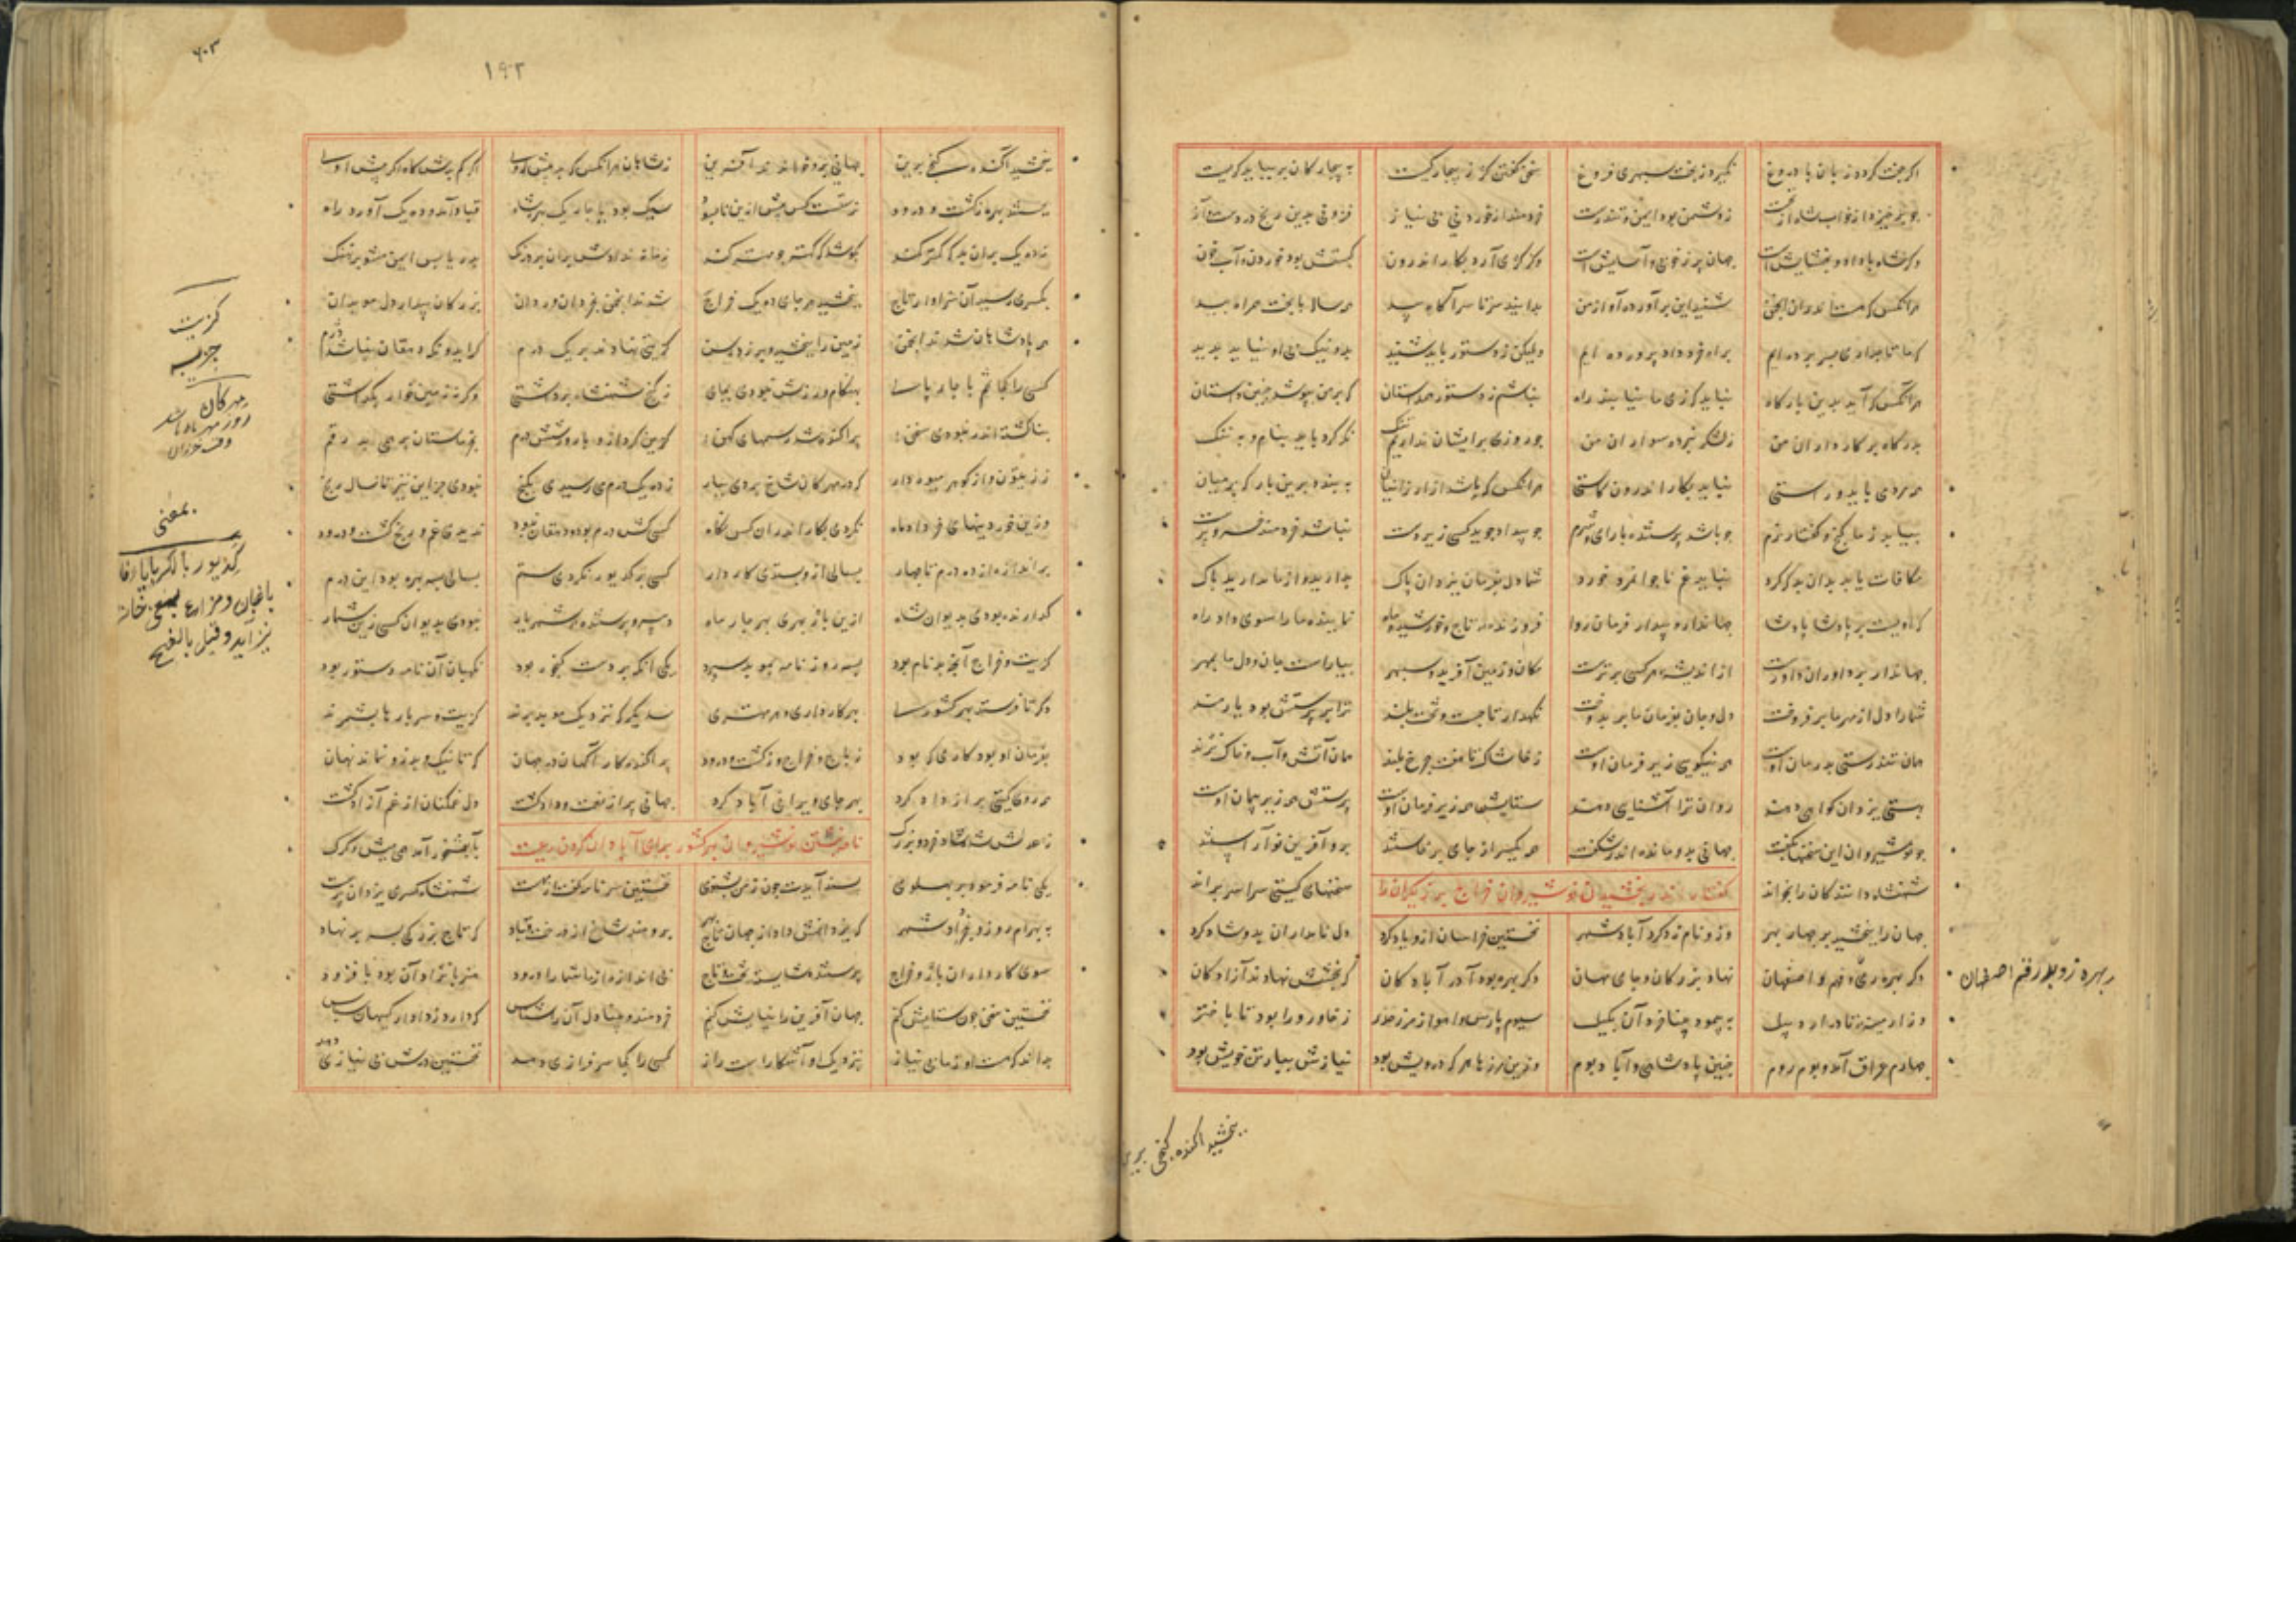 اگر جفت گردد زبان با دروغ نگیرد ز بخت سپهری فروغ
سخن گفتن کژ ز بیچارگیست به بیچارگان بر بباید گریست
چو برخیزد از خواب شاه از نخست ز دشمن بود ایمن و تندرست
خردمند از خوردنی بی نیاز فزونی بدین رنج و دردست و آز
وگر شاه با داد و بخشایش است جهان پر ز خوبی و آسایش است
وگر کژی آرد بکار اندرون کبستش بود خوردن و آب خون
هر آنکس که هست اندران انجمن شنید این برآورده آواز من
بدانید سرتاسر آگاه بید همه ساله با بخت همراه بید
که ما تاجداری بسر برده ایم براه خرد داد پرورده ایم
ولیکن ز دستور باید شنید بد و نیک بی او نیاید پدید
هر آنکس که آید بدین بارگاه نباید کژی ما نیابند راه
نباشم ز دستور همداستان که بر من بپوشد چنین داستان
بدرگاه بر کارداران من ز لشکر نبرده سواران من
چو روزی بر ایشان نداریم تنگ نگه کرد باید بنام و به ننگ
همه مردمی باید و راستی نباید بکار اندرون کاستی
هر آنکس که باشد از ایرانیان به بندد برین بارگه بر میان
بیابد ز ما گنج و گفتار نرم چو باشد پرستنده با رای و شرم
چو بیداد جوید کسی زیردست نباشد خردمند خسروپرست
مکافات یابد بدان بد که کرد نباید غم ناجوانمرد خورد
شما دل بفرمان یزدان پاک بدارید و از ما مدارید باک
که اویست بر پادشا پادشا جهاندار و بیدار و فرمان روا
فروزنده تاج و خورشید و ماه نماینده ما را سوی داد راه
جهاندار بر داوران داورست از اندیشه هر کسی برترست
مکان و زمین آفرید و سپهر بیاراست جان و دل ما بمهر
شما را دل از مهر ما برفروخت دل و جان بفرمان ما بر بدوخت
نگهدار تاجست و تخت بلند ترا بر پرستش بود یارمند
همان تندرستی بدرمان اوست همه نیکویی زیر فرمان اوست
ز خاشاک تا هفت چرخ بلند همان آتش و آب و خاک نژند
بهستی یزدان گواهی دهند روان ترا آشنایی دهند
ستایش همه زیر فرمان اوست پرستش همه زیر پیمان اوست
چو نوشیروان این سخنها بگفت جهانی بدو مانده اندر شگفت
همه یکسر از جای برخاستند برو آفرین نو آراستند
شهنشاه دانندگان را بخواند سخنهای گیتی سراسر براند
گفتار اندر بخشیدن نوشیروان خراج بر
جهان را ببخشید بر چهار بهر وزو نام زد کرد آباد شهر
نخستین خراسان ازو یاد کرد دل نامداران بدو شاد کرد
دگر بهره ری و قم و اصفهان نهاد بزرگان و جای مهان
دگر بهره بود آذرآبادگان که بخشش نهادند آزادگان
وز ارمینیه تا در اردبیل به پیمود بینا خرد آن بکیل
سیوم پارس و اهواز و مرز خزر ز خاور ورا بود تا باختر
چهارم عراق آمد و بوم روم چنین پادشاهی و آباد بوم
وزین مرزها هر که درویش بود نیازش ببیارتن خویش بود
اصفهان
ببخشید آکنده گنجی برین
۶۰۳
۱۹۲
ببخشید آکنده گنجی برین جهانی برو خواندند آفرین
ز شاهان هر آنکس که بد پیش ازوی اگر کم بدش گاه اگر بیش ازوی
بجستند بهره ز کشت و درود نرستست کس پیش ازین نابسود
سه یک بود یا چار یک بهر شاه قباد آمد و ده یک آورد راه
ز ده یک بران بد که کمتر کند بکوشد که کهتر چو مهتر کند
زمانه ندادش بران بر درنگ بدریا بس ایمن مشو بر نهنگ
بکسری رسید آن سزاوار تاج ببخشید بر جای ده یک خراج
شدند انجمن بخردان و ردان بزرگان بیداردل موبدان
همه پادشاهان شدند انجمن زمین را ببخشید و برزد رسن
گزیتی نهادند بر یک درم گر ایدونکه دهقان نباشد دژم
کسی را کجا تخم یا چارپای بهنگام ورزش نبودی بجای
ز گنج شهنشاه برداشتی وگرنه زمین خوار بگذاشتی
بناکشته اندر نبودی سخن پراکنده شد رسمهای کهن
گزین کرد از و بارور شش درم بخرمستان بر همی بد رقم
ز زیتون و از گوز و هر میوه دار که در مهرگان شاخ بردی ببار
ز ده یک درم می رسیدی بگنج نبودی جز این نیز تا سال رنج
وزین خوردنیهای خردادماه نکردی بکار اندران کس نگاه
کسی کش درم بود و دهقان نبود ندیدی غم و رنج کشت و درود
بر اندازه از ده درم تا چهار بسالی ازو بستدی کاردار
کسی بر کدیور نکردی ستم بسالی سه بهره بود این درم
گذارنده بودی بدیوان شاه ازین باژ بهری بهر چار ماه
دبیر و پرستنده شهریار نبودی بدیوان کسی زین شمار
گزیت و خراج آنچه بد نام بود بسه روزنامه بموبد سپرد
یکی آنکه بر دست گنجور بود نگهبان آن نامه دستور بود
دگر تا فرستد بهر کشوری بهر کارداری و هر مهتری
سدیگر که نزدیک موبد برند گزیت و سر بارها بشمرند
بفرمان او بود کاری که بود ز باج و خراج و ز کشت و درود
پراکند کارآگهان در جهان که تا نیک و بد زو نماند نهان
همه روی گیتی پر از داد کرد بهر جای ویرانی آباد کرد
جهانی پر از تخت و داد گشت دل غمگنان از غم آزاد گشت
نامه نبشتن نوشیروان بهر کشور برای آبادان کردن رعیت
بآبشخور آمد همی میش و گرگ
یکی نامه فرمود بر پهلوی پسند آیدت چون ز من بشنوی
نخستین سر نامه گفت از مهست شهنشاه کسری یزدان پرست
به بهرام روز و بخرداد شهر که یزدانش داد از جهان تاج بهر
برومند شاخ از درخت قباد که تاج بزرگی بسر بر نهاد
سوی کارداران باژ و خراج پرستنده شایسته تخت و تاج
بی اندازه از ما شما را درود هنر با نژاد آن بود با فزود
نخستین سخن چون ستایش کنم جهان آفرین را نیایش کنم
خردمند و بینادل آن را شناس که دارد ز دادار گیهان سپاس
بداند که هست او ز ما بی نیاز بنزدیک او آشکارا است راز
کسی را کجا سرفرازی دهد نخستین درش بی نیازی دهد
گزیت
جزیه
مهرکان
روز مهر ماه باشد
وقت خزان
بمعنی
کدیور بالکر
باغبان و مزارع
نیز آید و قیل بالفتح